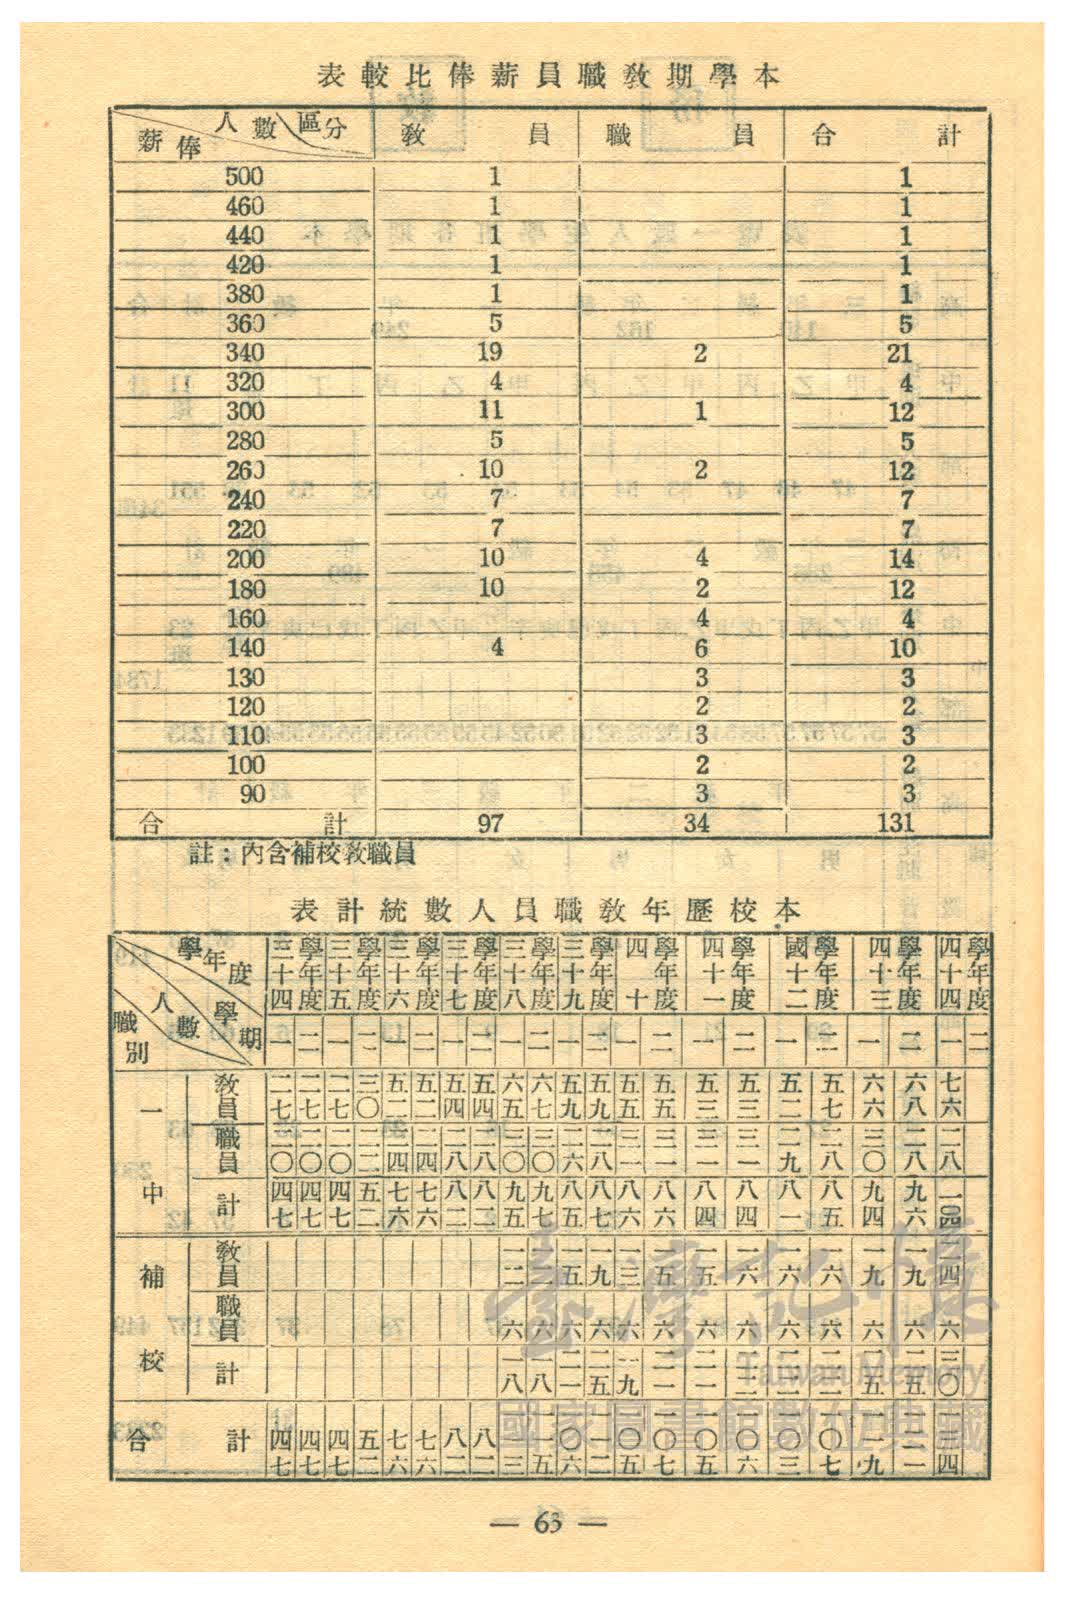 本學期教職員薪俸比較表
薪俸 人數 區分 教員 職員 合計
500 1 1
460 1 1
440 1 1
420 1 1
380 1 1
360 5 5
340 19 2 21
320 4 4
300 11 1 12
280 5 5
260 10 2 12
240 7 7
220 7 7
200 10 4 14
180 10 2 12
160 4 4
140 4 6 10
130 3 3
120 2 2
110 3 3
100 2 2
90 3 3
合計 97 34 131
註：內含補校教職員
本校歷年教職員人數統計表
學年度 三十四學年度 三十五學年度 三十六學年度 三十七學年度 三十八學年度 三十九學年度 四十學年度 四十一學年度 國十二學年度 四十三學年度 四十四學年度
職別 人數 學期 一 二 一 二 一 二 一 二 一 二 一 二 一 二 一 二 一 二 一 二 一 二
一中 教員 二七 二七 二七 三〇 五二 五二 五四 五四 六五 六七 五九 五九 五五 五五 五三 五三 五二 五七 六六 六八 七六
職員 二〇 二〇 二〇 二二 二四 二四 二八 二八 三〇 三〇 二六 二八 三一 三一 三一 三一 二九 二八 三〇 二八 二八
計 四七 四七 四七 五二 七六 七六 八二 八二 九五 九七 八五 八七 八六 八六 八四 八四 八一 八五 九四 九六 一〇四
補校 教員 一二 一二 一五 一九 一三 一五 一五 一六 一六 一六 一九 一九 二四
職員 六 六 六 六 六 六 六 六 六 六 六 六 六
計 一八 一八 二一 二五 一九 二一 二一 二二 二二 二二 二五 二五 三〇
合計 四七 四七 四七 五二 七六 七六 八二 八二 一一三 一一五 一〇六 一一二 一〇五 一〇七 一〇五 一〇六 一〇三 一〇七 一一九 一二一 一三四
臺灣記憶
Taiwan Memory
國家圖書館數位典藏
— 63 —